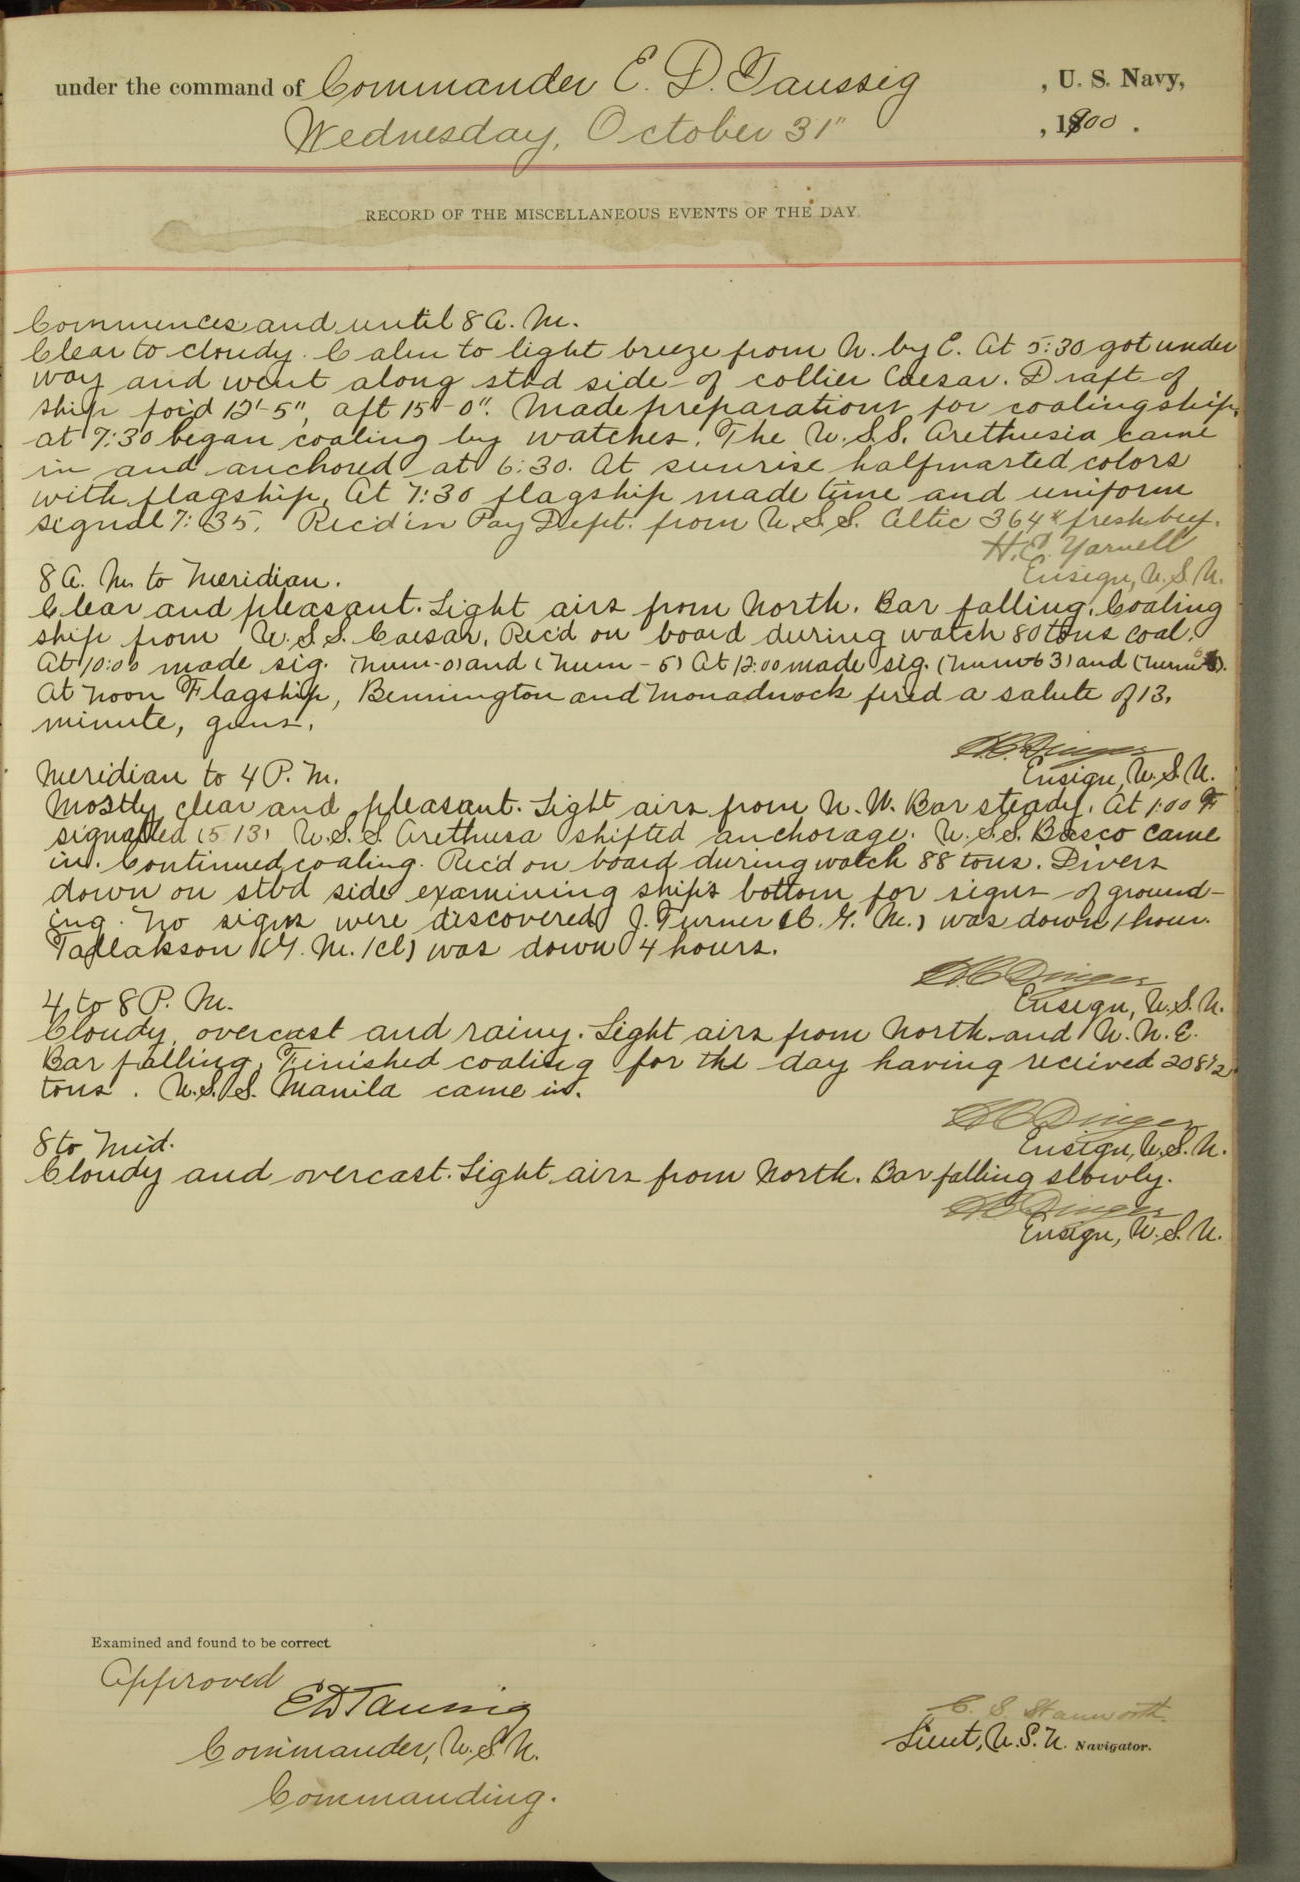 under the command of Commander E. D. Taussig , U. S. Navy,
Wednesday, October 31" , 1900 .
RECORD OF THE MISCELLANEOUS EVENTS OF THE DAY.
Commences and until 8 A. M.
Clear to cloudy. Calm to light breeze from N. by E. At 5:30 got under
way and went along stbd side of collier Caesar. Draft of
ship for'd 12'-5", aft 15'-0". Made preparations for coaling ship,
at 7:30 began coaling by watches. The U.S.S. Arethusia came
in and anchored at 6:30. At sunrise halfmasted colors
with flagship. At 7:30 flagship made time and uniform
signal 7:35. Rec'd in Pay Dept. from U.S.S. Celtic 364# fresh beef.
H. E. Yarnell
Ensign, U.S.N.
8 A. M. to Meridian.
Clear and pleasant. Light airs from North. Bar falling. Coaling
ship from U.S.S. Caesar. Rec'd on board during watch 80 tons coal.
At 10:00 made sig. (Num-0) and (Num-5) At 12:00 made sig. (Num-63) and
At Noon Flagship, Bennington and Monadnock fired a salute of 13,
minute, guns.
H.C. Dinger
Ensign, U.S.N.
Meridian to 4 P. M.
Mostly clear and pleasant. Light airs from N.W. Bar steady. At 1:00 F
signalled (513) U.S.S. Arethusa shifted anchorage. U.S.S. Basco came
in. Continued coaling. Rec'd on board during watch 88 tons. Divers
down on stbd side examining ship's bottom for signs of ground-
ing. No signs were discovered J. Turner (C. G. M.) was down 1 hour.
Tallakson (G. M. 1cl) was down 4 hours.
H.C. Dinger
Ensign, U.S.N.
4 to 8 P. M.
Cloudy, overcast and rainy. Light airs from North and N.N.E.
Bar falling. Finished coaling for the day having received 208 1/2
tons. U.S.S. Manila came in.
H.C. Dinger
Ensign, U.S.N.
8 to Mid.
Cloudy and overcast. Light airs from North. Bar falling slowly.
H.C. Dinger
Ensign, U.S.N.
Examined and found to be correct.
Approved
E D Taussig
Commander, U.S.N.
Commanding.
C. S. Stanworth
Lieut, U.S.N. Navigator.